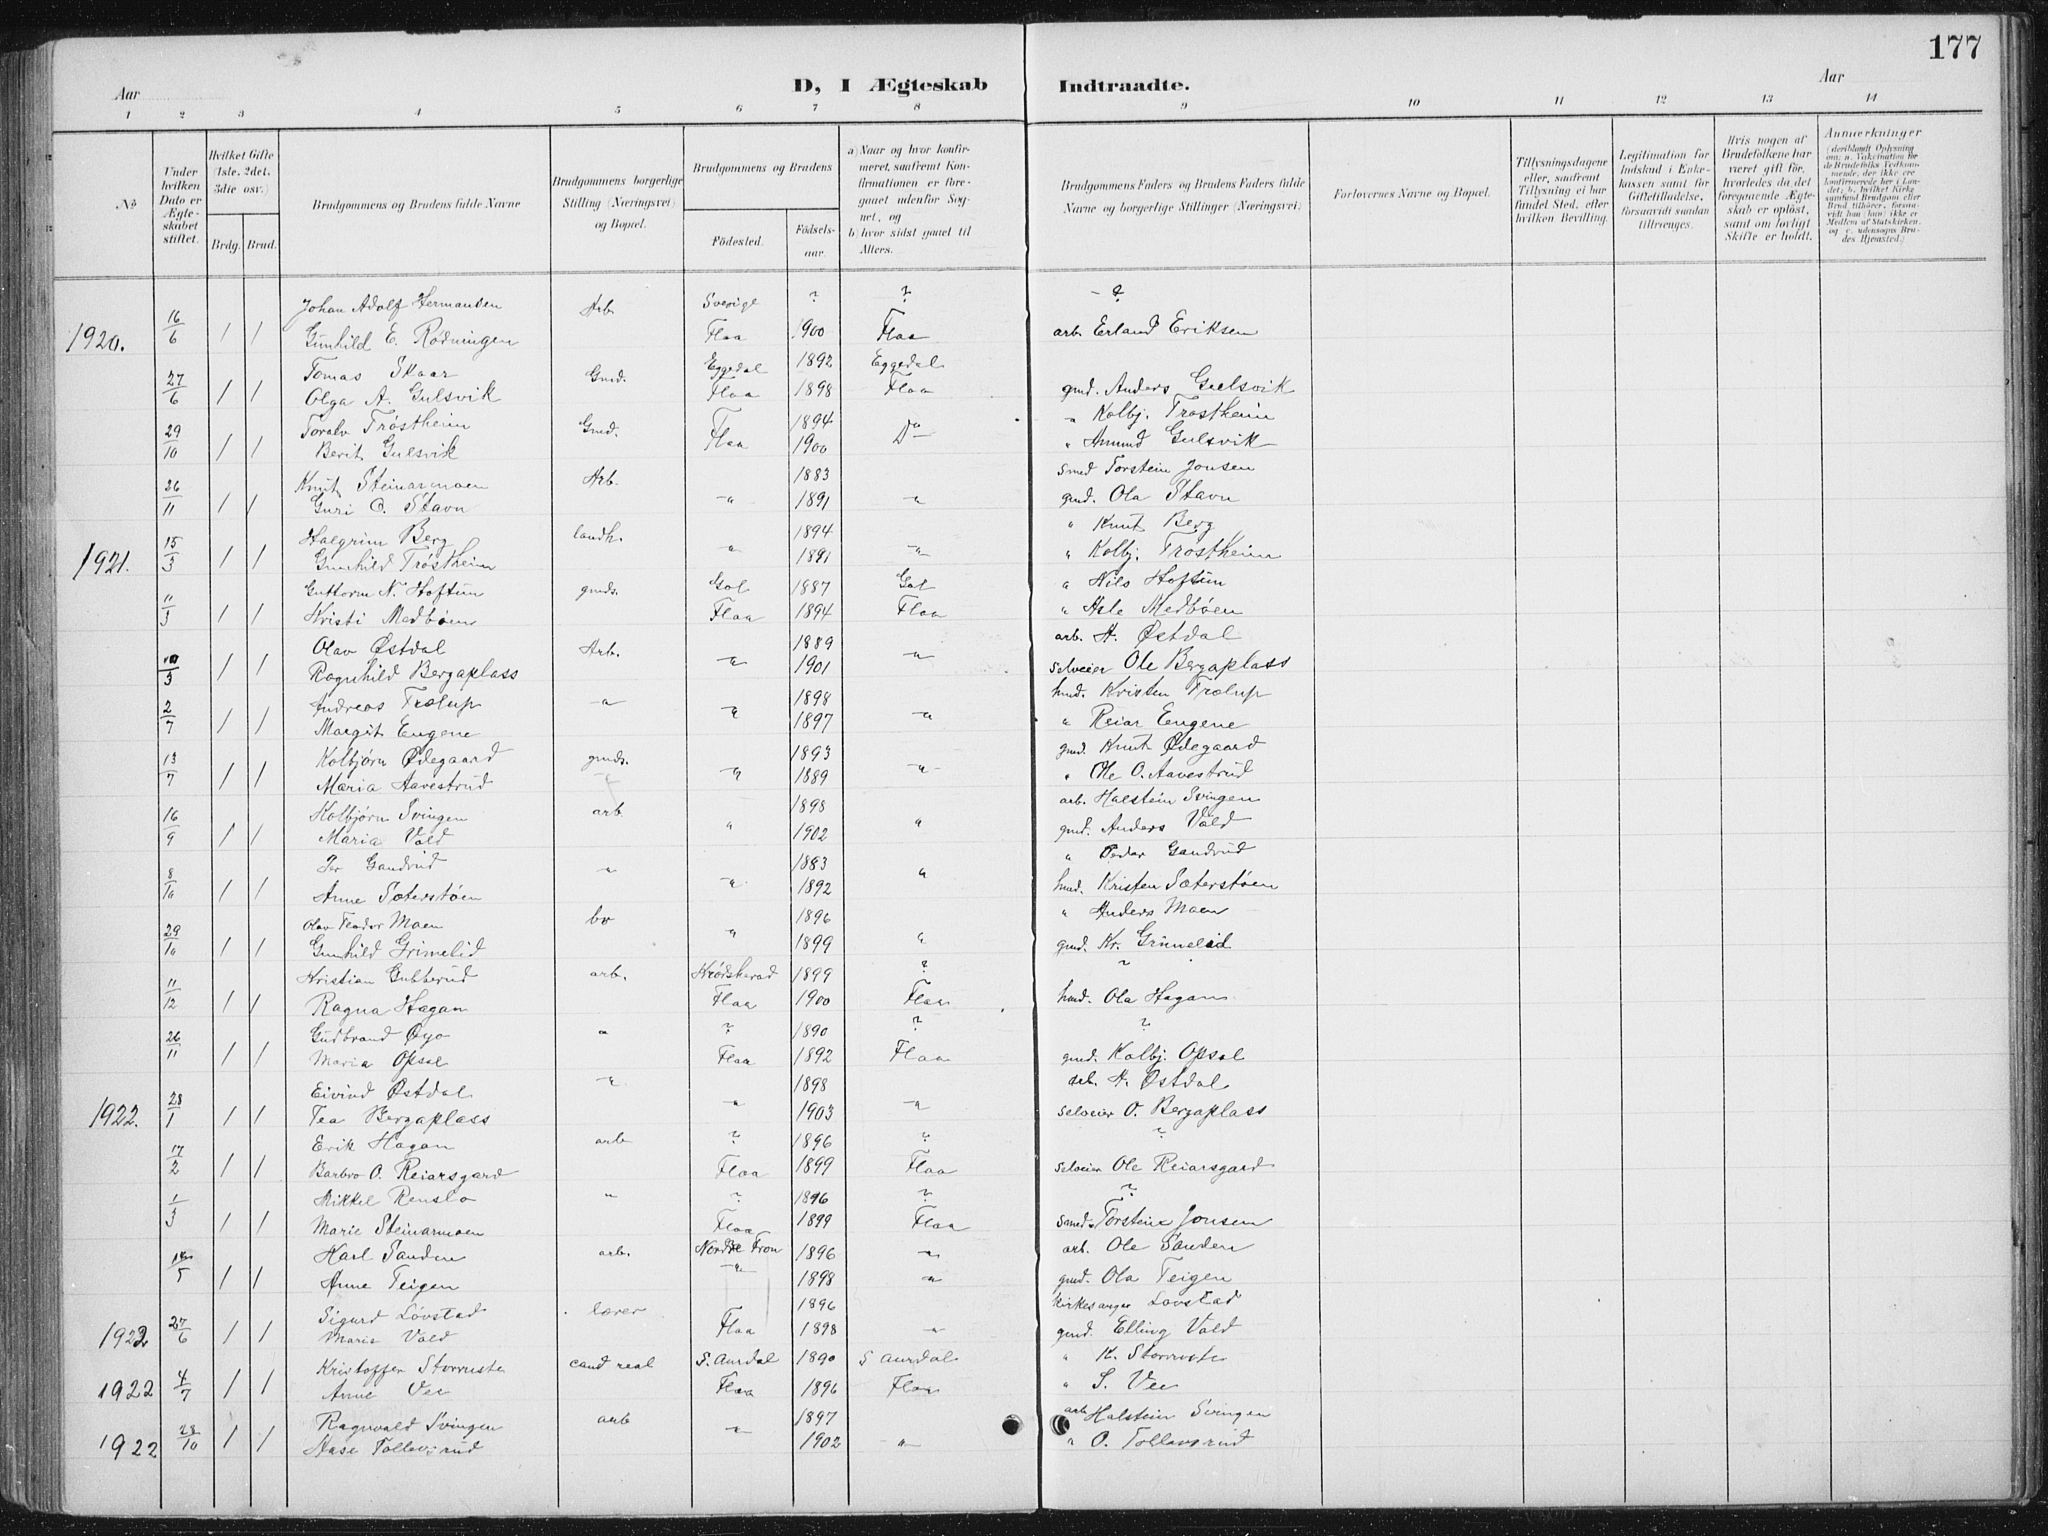 177
D, I Ægteskab Indtraadte.
Aar Aar
1 2 3 4 5 6 7 8 9 10 11 12 13 14
No
Under hvilken Dato er Ægteskabet stiftet.
Hvilket Gifte (1ste, 2det, 3die osv.)
Brdg. Brud.
Brudgommens og Brudens fulde Navne
Brudgommens borgerlige Stilling (Næringsvei) og Bopæl.
Brudgommens og Brudens
Fødested. Fødselsaar.
a) Naar og hvor konfirmeret, saafremt Konfirmationen er foregaaet udenfor Sognet, og
b) hvor sidst gaaet til Alters.
Brudgommens Faders og Brudens Faders fulde Navne og borgerlige Stillinger (Næringsvei)
Forlovernes Navne og Bopæl.
Tillysningsdagene eller, saafremt Tillysning ei har fundet Sted, efter hvilken Bevilling.
Legitimation for Indskud i Enkekassen samt for Giftetilladelse, forsaavidt saadan tiltrænges.
Hvis nogen af Brudefolkene har været gift før, hvorledes da det foregaaende Ægteskab er opløst, samt om lovligt Skifte er holdt.
Anmerkninger
Johan Adolf Hermansen Arb. Sverige ? ? - ?
1920. 16/6 1 1 Gunhild E. Rødningen Flaa 1900 Flaa arb. Erland Eriksen
Tomas Skaar Gmd. Eggedal 1892 Eggedal
27/6 1 1 Olga A. Gulsvik Flaa 1898 Flaa gmd. Anders Gulsvik
Toralv Trøstheim Gmd. Flaa 1894 Do " Kolbj. Trøstheim
29/10 1 1 Berit Gulsvik 1900 " Amund Gulsvik
Knut Steinarmoen Arb. 1883 smed Torstein Jonsen
26/11 1 1 Guri O. Stavn " 1891 " gmd. Ola Stavn
Halgrim Berg landh. 1894 " Knut Berg
1921. 15/3 1 1 Gunhild Trøstheim " 1891 " " Kolbj. Trøstheim
Guttorm N. Hoftun gmds. Gol 1887 Gol " Nils Hoftun
11/3 1 1 Kristi Medbøen Flaa 1894 Flaa " Asle Medbøen
Olav Østdal Arb. 1889 arb. H. Østdal
1 1 Ragnhild Bergaplass " 1901 " selveier Ole Bergaplass
Andreas Trølup " 1898 hmd. Kristen Trølup
2/7 1 1 Margit Eugene " 1897 " " Reiar Eugene
Kolbjørn Ødegaard gmds. 1893 gmd. Knut Ødegaard
13/7 1 1 Maria Aavestrud " 1889 " " Ole O. Aavestrud
Kolbjørn Svingen arb. 1898 arb. Halstein Svingen
16/9 1 1 Maria Vold " 1902 " gmd. Anders Vold
Per Gandrud " 1883 " Peder Gandrud
8/10 1 1 Anne Sæterstøen " 1892 " hmd. Kristen Sæterstøen
Olav Teodor Moen 1896 " Anders Moen
29/10 1 1 Gunhild Grimelid " 1899 " gmd. Kr. Grimelid
Kristian Gulterud arb. Krødsherad 1899 ? "
11/12 1 1 Ragna Hagan Flaa 1900 Flaa hmd. Ola Hagan
Gudbrand Øyo " ? 1890 ? ?
26/11 1 1 Maria Opsal Flaa 1892 Flaa gmd. Kolbj. Opsal
Eivind Østdal " 1898 arb. H. Østdal
1922. 28/1 1 1 Tea Bergaplass " 1903 " selveier O. Bergaplass
Erik Hagan arb ? 1896 ? ?
17/2 1 1 Barbro O. Reiarsgard Flaa 1899 Flaa selveier Ole Reiarsgard
Mikkel Renslo " ? 1896 ? ?
1/3 1 1 Marie Steinarmoen Flaa 1899 Flaa smed Torstein Jonsen
Karl Sanden arb. Nordre Fron 1896 " arb. Ole Sanden
1 1 Anne Teigen " 1898 " gmd. Ola Teigen
Sigurd Løvstad lærer 1896 kirkesanger Løvstad
1922 27/6 1 1 Marie Vold Flaa 1898 " gmd. Elling Vold
Kristoffer Storruste cand real S. Aurdal 1890 S Aurdal " K. Storruste
1922 4/7 1 1 Anne Vee Flaa 1896 Flaa " S. Vee
Ragnvald Svingen arb 1897 arb Halstein Svingen
1922 28/10 1 1 Aase Tollevsrud " 1902 " " O. Tollevsrud